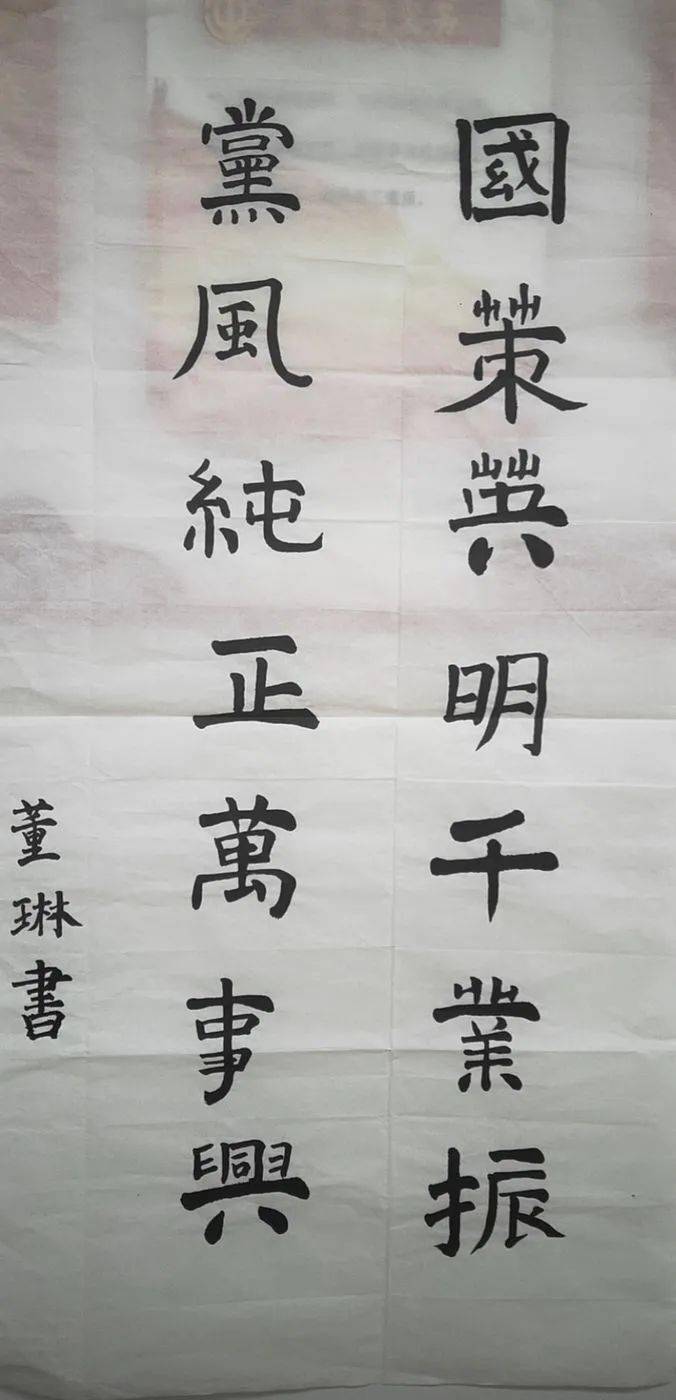 國策英明千業振
黨風純正萬事興
董琳書